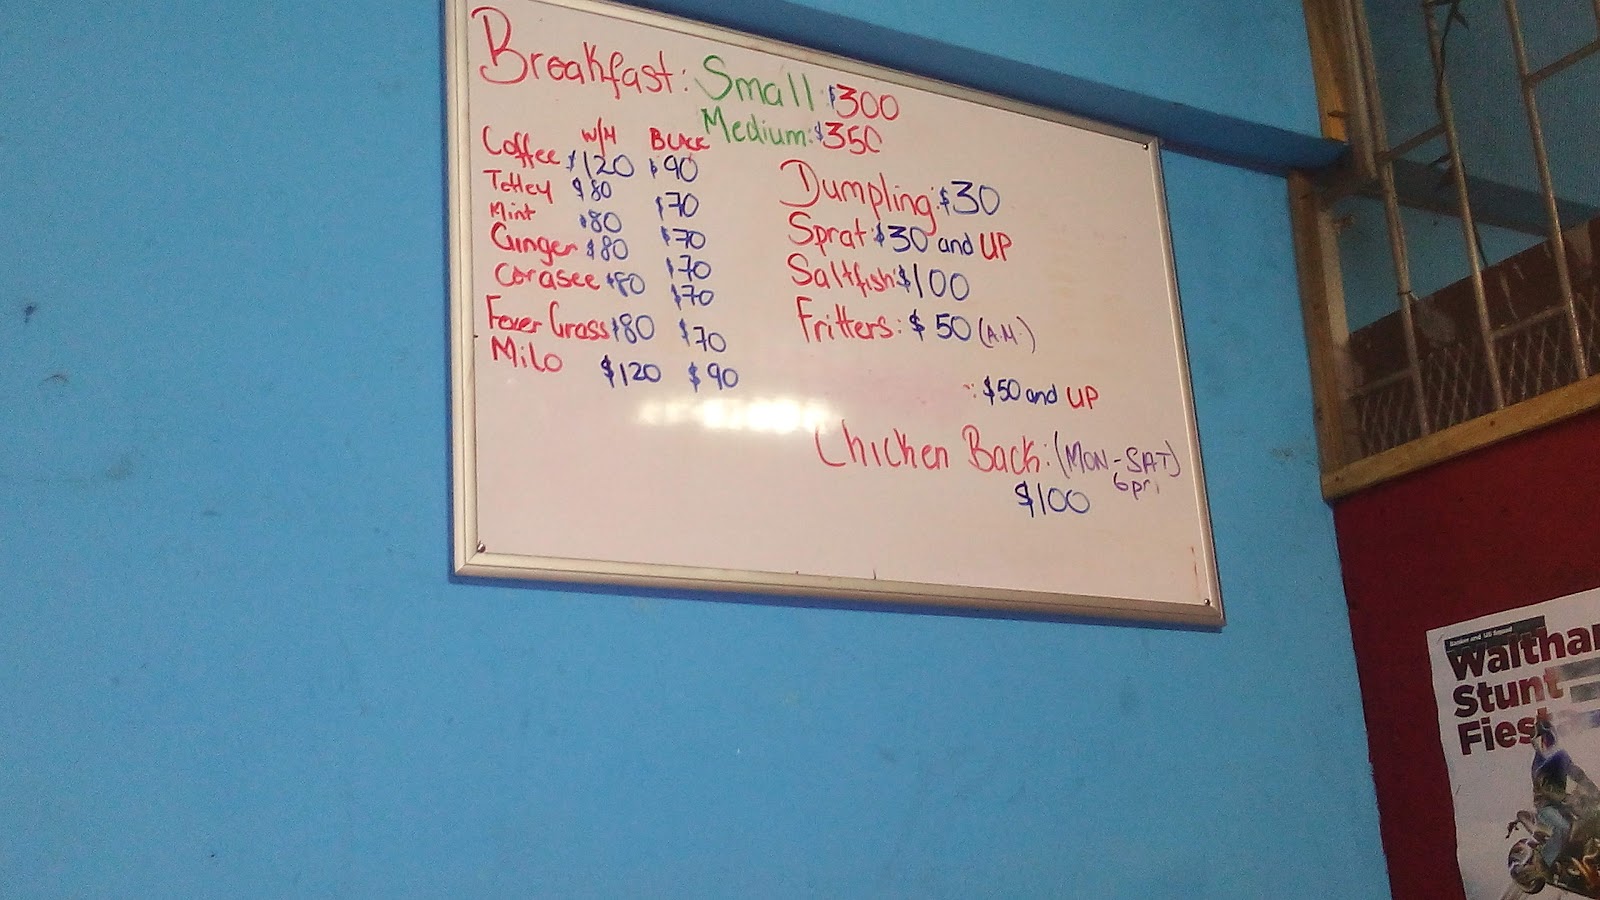 Breakfast: Small: $300
Medium: $350
W/M BLACK
Coffee $120 $90
Tetley $80 $70
Mint $80 $70
Ginger $80 $70
Cerasee $80 $70
Fever Grass $80 $70
Milo $120 $90
Dumpling: $30
Sprat: $30 and UP
Saltfish: $100
Fritters: $50 (A.M.)
: $50 and UP
Chicken Back: (MON-SAT)
6pm
$100
Waltham
Stunt
Fiest